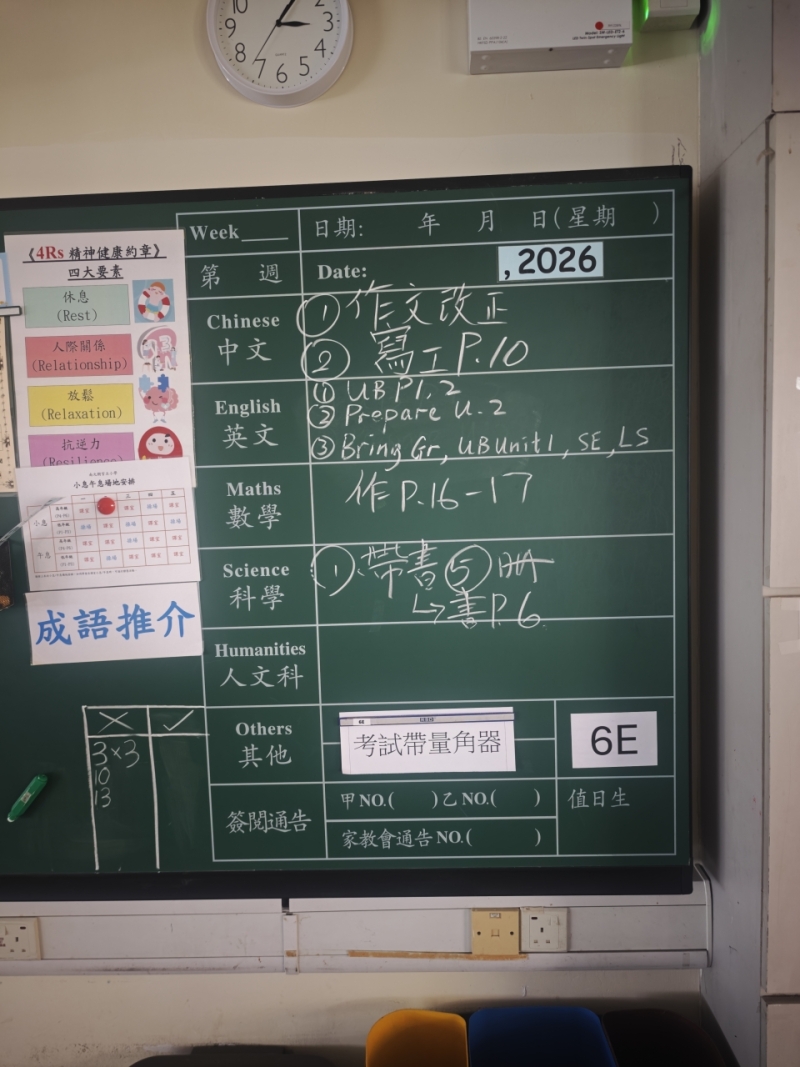 10
2
3
4
5
6
7
8
Week____
日期: 年 月 日(星期 )
第 週
Date: ,2026
《4Rs 精神健康約章》
四大要素
休息
(Rest)
人際關係
(Relationship)
放鬆
(Relaxation)
抗逆力
(Resilience)
小息午息場地安排
小息
午息
成語推介
Chinese
中文
① 作文改正
② 寫工 P.10
English
英文
① UB P1, 2
② Prepare U.2
③ Bring Gr, UB Unit 1, SE, LS
Maths
數學
作 P.16-17
Science
科學
① 帶書 ⑤ 冊
↳ 書 P.6
Humanities
人文科
Others
其他
考試帶量角器
6E
簽閱通告
甲NO.( )乙NO.( )
家教會通告NO.( )
值日生
✗ ✓
3×3
10
13